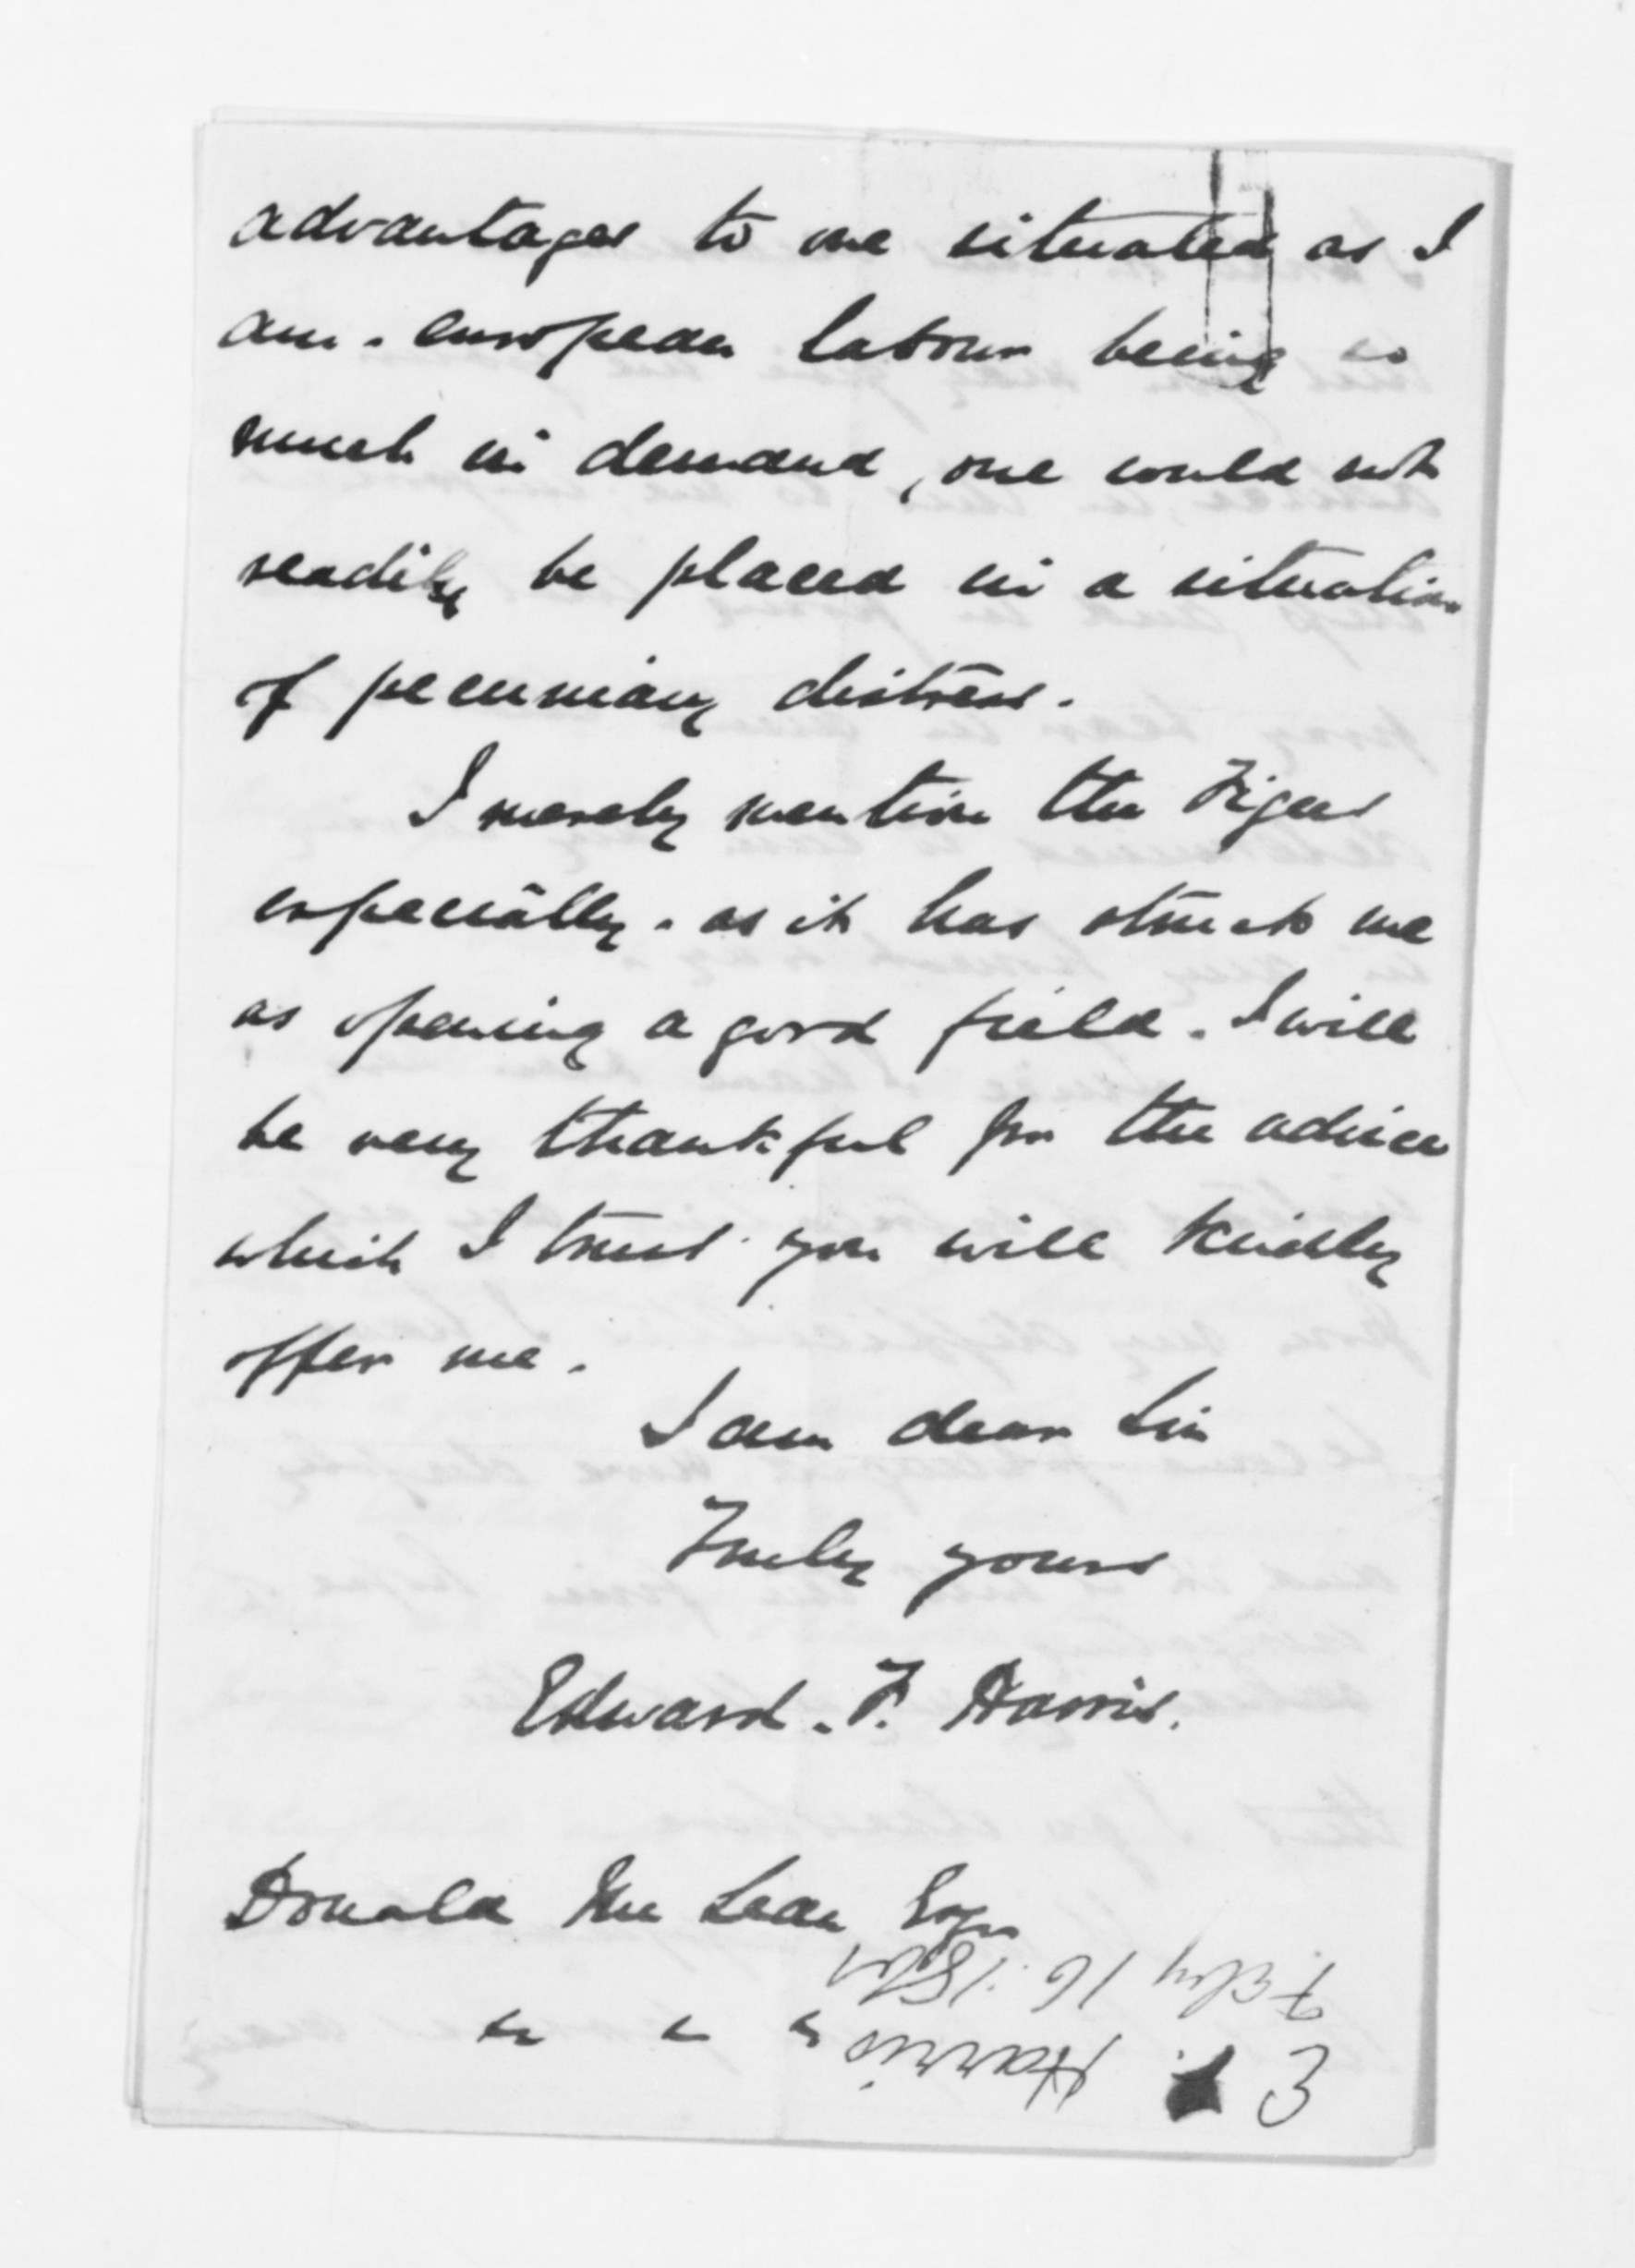 advantages to one situated as I
am. european labour being so
much in demand, one could not
readily be placed in a situation
of pecuniary distress.
I merely mention the Figees
especially. as it has struck me
as opening a good field. I will
be very thankful for the advice
which I trust you will kindly
offer me.
I am dear Sir
Truly yours
Edward. F. Harris.
Donald McLean Esqr
" " "
E F. Harris
Feby 16.